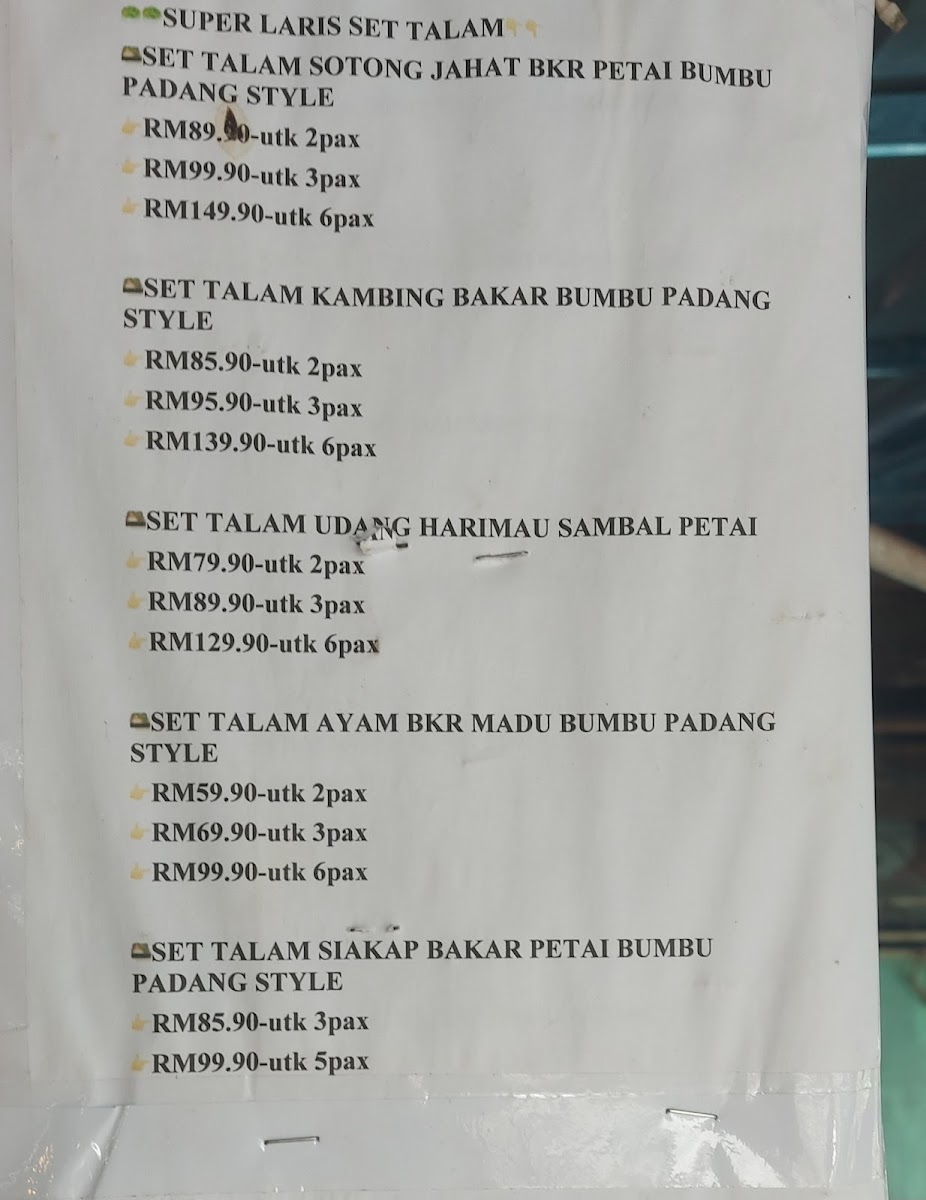 🥬🥬SUPER LARIS SET TALAM👇👇
SET TALAM SOTONG JAHAT BKR PETAI BUMBU
PADANG STYLE
👉RM89.90-utk 2pax
👉RM99.90-utk 3pax
👉RM149.90-utk 6pax
SET TALAM KAMBING BAKAR BUMBU PADANG
STYLE
👉RM85.90-utk 2pax
👉RM95.90-utk 3pax
👉RM139.90-utk 6pax
SET TALAM UDANG HARIMAU SAMBAL PETAI
👉RM79.90-utk 2pax
👉RM89.90-utk 3pax
👉RM129.90-utk 6pax
SET TALAM AYAM BKR MADU BUMBU PADANG
STYLE
👉RM59.90-utk 2pax
👉RM69.90-utk 3pax
👉RM99.90-utk 6pax
SET TALAM SIAKAP BAKAR PETAI BUMBU
PADANG STYLE
👉RM85.90-utk 3pax
👉RM99.90-utk 5pax